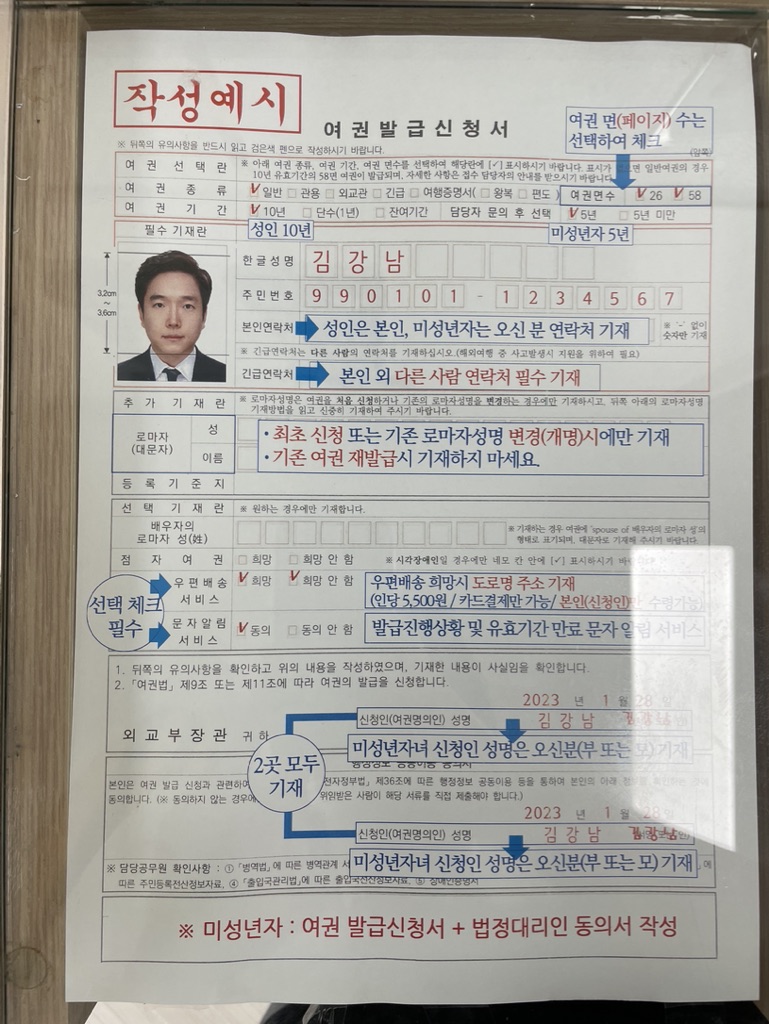 작성예시
여권발급신청서
여권 면(페이지) 수는
선택하여 체크
※ 뒤쪽의 유의사항을 반드시 읽고 검은색 펜으로 작성하시기 바랍니다.
(앞쪽)
여권 선택란 ※ 아래 여권 종류, 여권 기간, 여권 면수를 선택하여 해당란에 [✓] 표시하시기 바랍니다. 표시가 없으면 일반여권의 경우
10년 유효기간의 58면 여권이 발급되며, 자세한 사항은 접수 담당자의 안내를 받으시기 바랍니다.
여권 종류 ☑ 일반 □ 관용 □ 외교관 □ 긴급 □ 여행증명서(□ 왕복 □ 편도) 여권면수 ☑ 26 ☑ 58
여권 기간 ☑ 10년 □ 단수(1년) □ 잔여기간 담당자 문의 후 선택 ☑ 5년 □ 5년 미만
필수 기재란 성인 10년 미성년자 5년
한글성명 김강남
3.2cm
~
3.6cm
주민번호 990101-1234567
본인연락처 성인은 본인, 미성년자는 오신 분 연락처 기재 ※ '-' 없이
숫자만 기재
※ 긴급연락처는 다른 사람의 연락처를 기재하십시오.(해외여행 중 사고발생시 지원을 위하여 필요)
긴급연락처 본인 외 다른 사람 연락처 필수 기재
추가 기재란 ※ 로마자성명은 여권을 처음 신청하거나 기존의 로마자성명을 변경하는 경우에만 기재하시고, 뒤쪽 아래의 로마자성명
기재방법을 읽고 신중히 기재하여 주시기 바랍니다.
로마자
(대문자)
성
이름
• 최초 신청 또는 기존 로마자성명 변경(개명)시에만 기재
• 기존 여권 재발급시 기재하지 마세요.
등록기준지
선택 기재란 ※ 원하는 경우에만 기재합니다.
배우자의
로마자 성(姓)
※ 기재하는 경우 여권에 'spouse of 배우자의 로마자 성'의
형태로 표기되며, 대문자로 기재해 주시기 바랍니다.
점자여권 □ 희망 □ 희망 안 함 ※ 시각장애인일 경우에만 네모 칸 안에 [✓] 표시하시기
선택 체크
필수
우편배송
서비스
☑ 희망 ☑ 희망 안 함
우편배송 희망시 도로명 주소 기재
(인당 5,500원 / 카드결제만 가능/ 본인(신청인)만 수령가능)
문자알림
서비스
☑ 동의 □ 동의 안 함
발급진행상황 및 유효기간 만료 문자 알림 서비스
1. 뒤쪽의 유의사항을 확인하고 위의 내용을 작성하였으며, 기재한 내용이 사실임을 확인합니다.
2. 「여권법」 제9조 또는 제11조에 따라 여권의 발급을 신청합니다.
2023 년 1 월 28 일
신청인(여권명의인) 성명 김강남 김강남
외교부장관 귀하
미성년자녀 신청인 성명은 오신분(부 또는 모) 기재
2곳 모두
기재
본인은 여권 발급 신청과 관련하여
전자정부법」 제36조에 따른 행정정보 공동이용 등을 통하여 본인의 아래
동의합니다. (※ 동의하지 않는 경우에
위임받은 사람이 해당 서류를 직접 제출해야 합니다.)
2023 년 1 월 28 일
신청인(여권명의인) 성명 김강남 김강남
미성년자녀 신청인 성명은 오신분(부 또는 모) 기재
※ 담당공무원 확인사항 : ① 「병역법」에 따른 병역관계 서
따른 주민등록전산정보자료, ④ 「출입국관리법」에 따른 출입국전산정보자료, ⑤ 장애인증명서
※ 미성년자 : 여권 발급신청서 + 법정대리인 동의서 작성